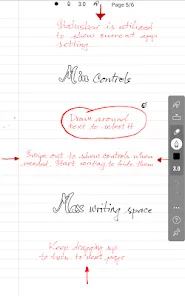 3.0 Page 5/6
Statusbar is utilized
to show current app
setting
Min Controls
Draw around
text to select it
Swipe out to show controls when
needed. Start writing to hide them
3.0
Max writing space
Keep dragging up
to turn to next page